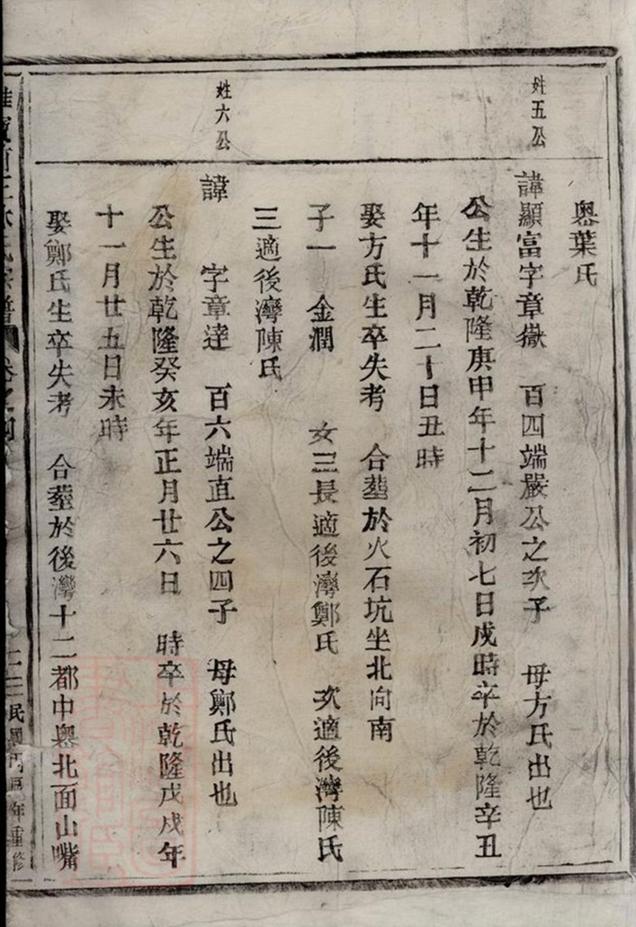 姓五公
姓六公
粵葉氏
諱顯富字章嶽 百四端嚴公之次子 母方氏出也
公生於乾隆庚申年十二月初七日戌時卒於乾隆辛丑
年十一月二十日丑時
娶方氏生卒失考 合塟於火石坑坐北向南
子一 金潤 女三長適後灣鄭氏 次適後灣陳氏
三適後灣陳氏
諱 字章達 百六端直公之四子 母鄭氏出也
公生於乾隆癸亥年正月廿六日 時卒於乾隆戊戌年
十一月廿五日未時
娶鄭氏生卒失考 合塟於後灣十二都中粵北面山嘴
氏宗譜 卷之四
民國 年重修